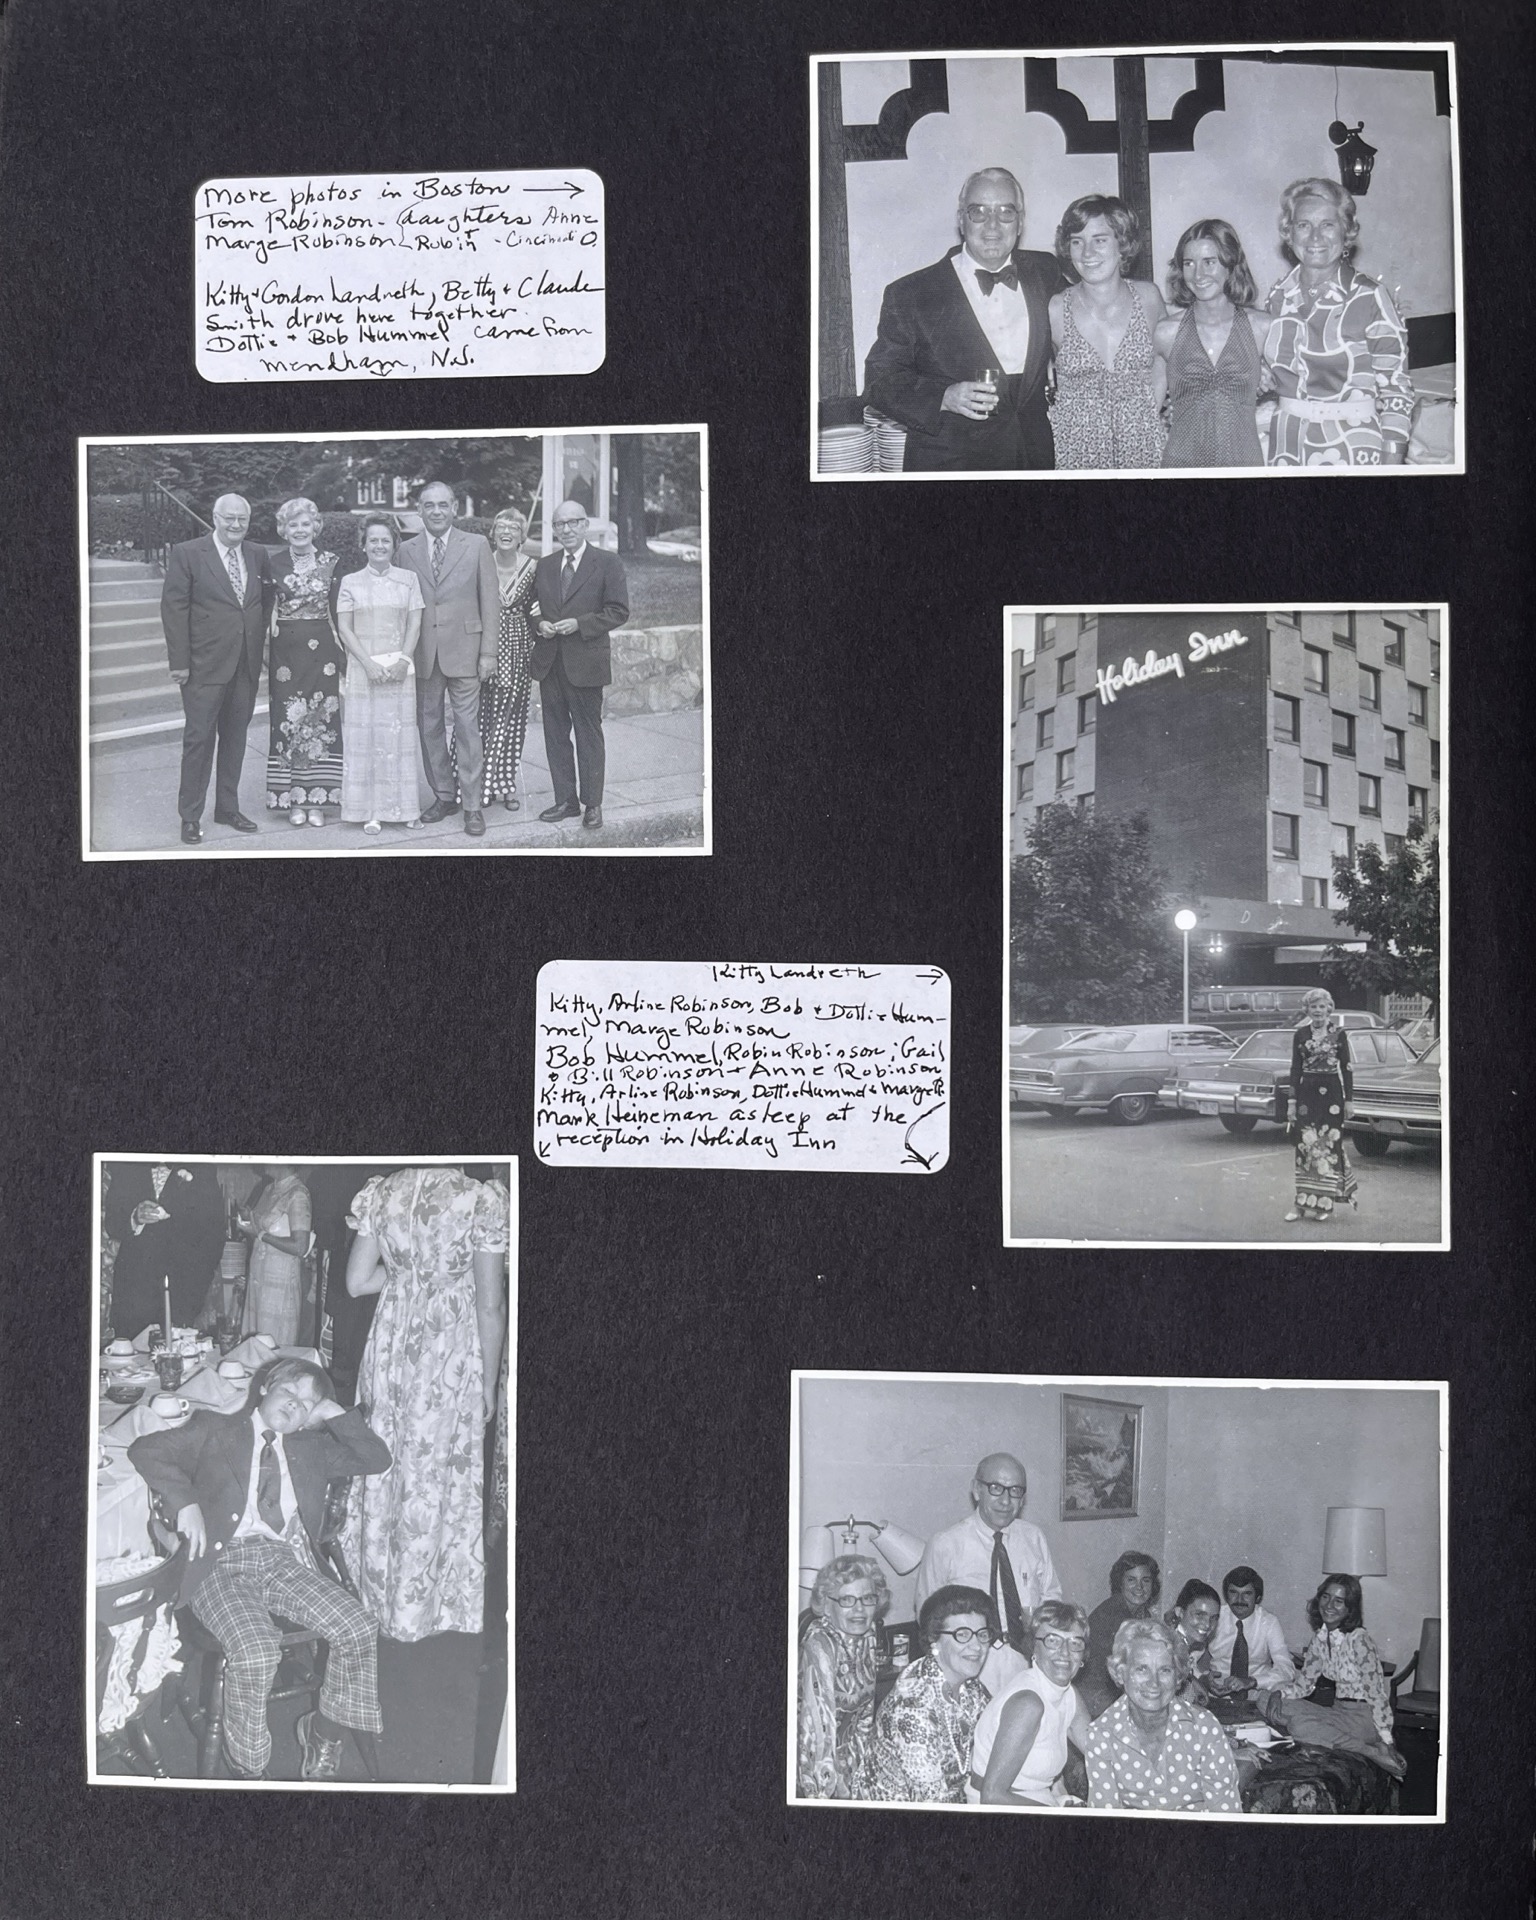 More photos in Boston →
Tom Robinson - daughters Anne
Marge Robinson Robin + - Cincinnati O.
Kitty + Gordon Landreth, Betty + Claude
Smith drove here together.
Dottie + Bob Hummel came from
Mendham, N.J.
Holiday Inn
Kitty Landreth →
Kitty, Arline Robinson, Bob + Dottie Hum-
mel, Marge Robinson
Bob Hummel, Robin Robinson; Gail
+ Bill Robinson + Anne Robinson
Kitty, Arline Robinson, Dottie Hummel + Marge R.
Mark Heineman asleep at the
reception in Holiday Inn